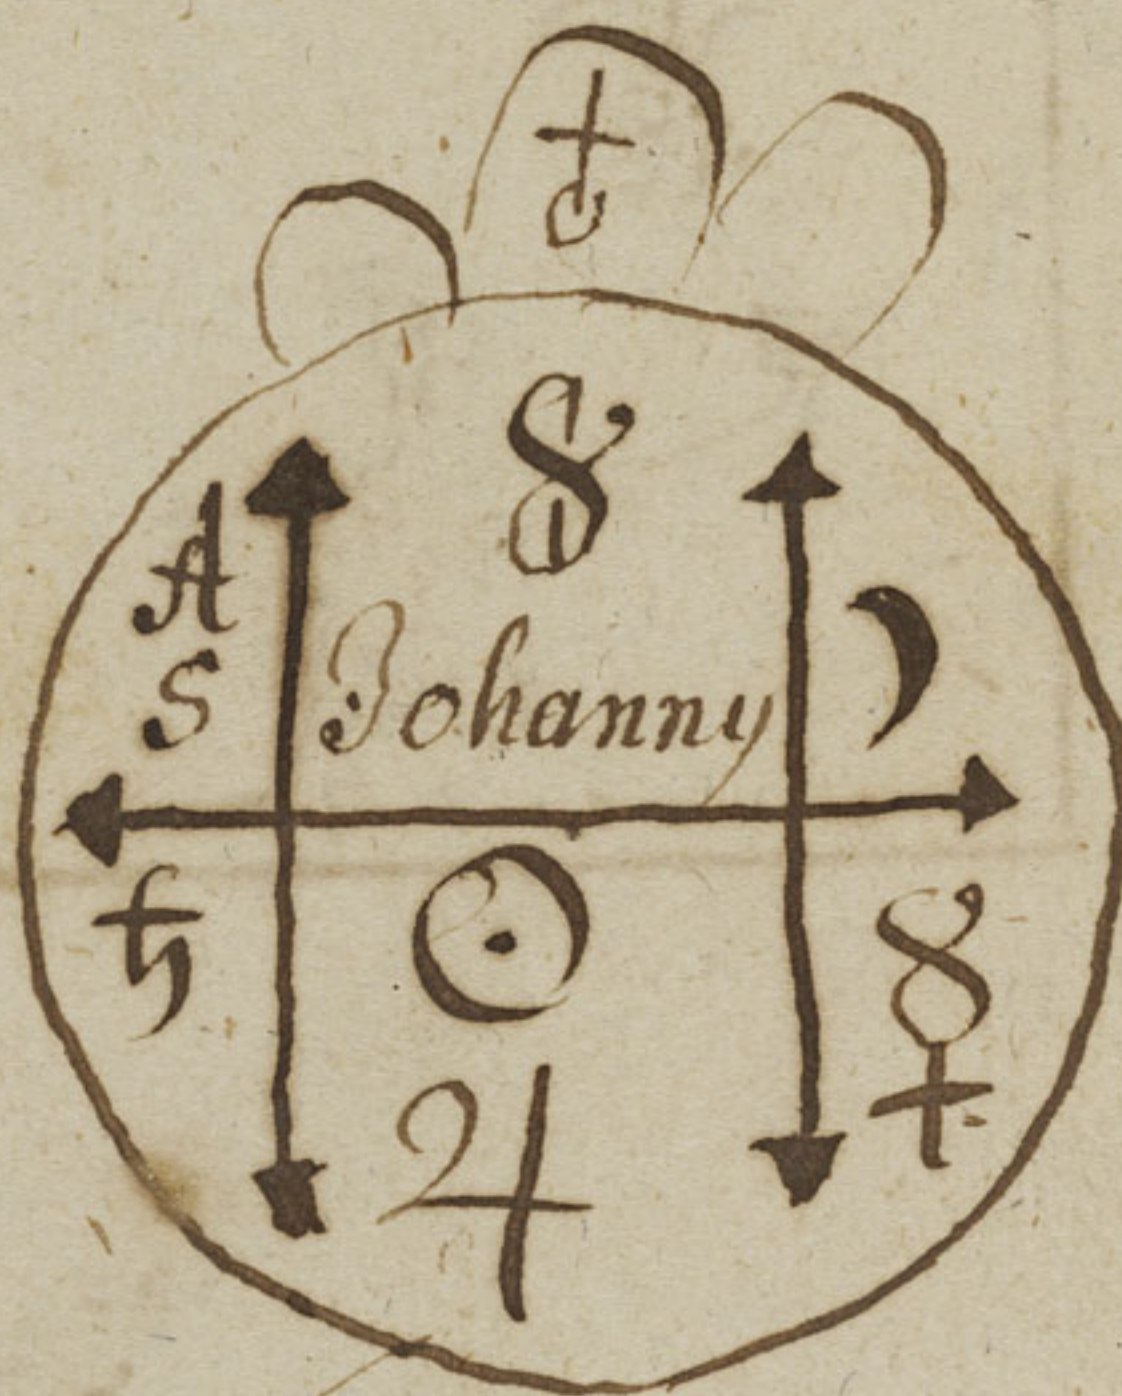 A
S
Johanny
♄
☉
☿
♃